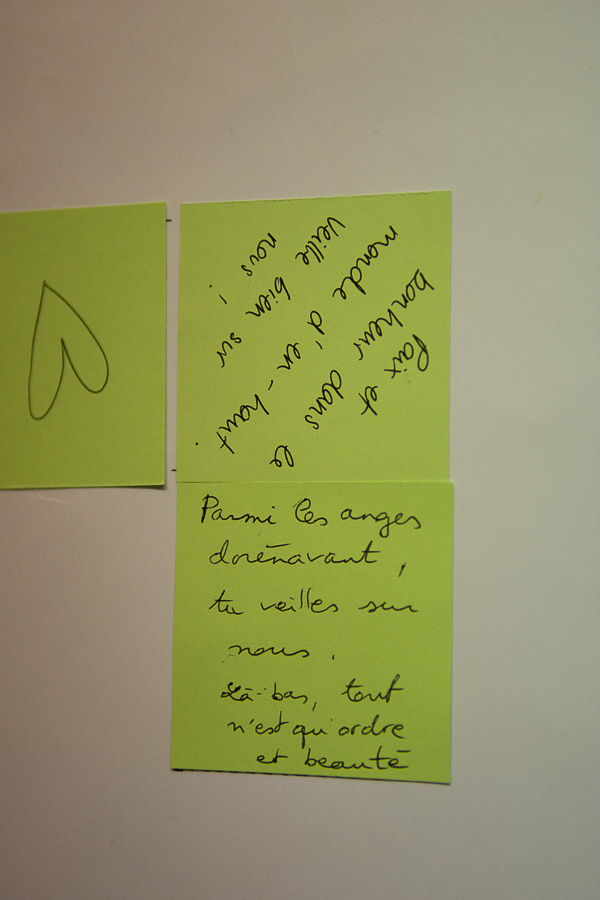 Paix et
bonheur dans le
monde d'en-haut.
Veille bien sur
nous !
Parmi les anges
dorénavant,
tu veilles sur
nous.
Là-bas, tout
n'est qu'ordre
et beauté